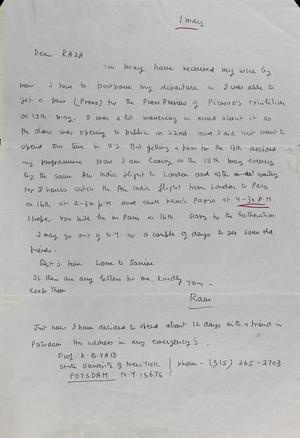 1 May
Dear RAZA
You may have received my wire by
now. I had to postpone my departure as I was able to
get a pass (Press) for the Press Preview of Picasso's exhibition
on 13th May. I was a bit wavering in mind about it as
the show was opening to public on 22nd and I did not want to
spend this time in U.S. But getting a pass for the 13th decided
my programme. Now I am leaving on the 15th May evening
by the same Air India flight to London and after waiting
for 8 hours catch the Air India flight from London to Paris
on 16th at 2-30 P.M. and shall reach Paris at 4-30 P.M.
I hope, you will be in Paris on 16th. Sorry for the botheration
I may go out of N.Y. for a couple of days to see some old
friends.
Rest is fine. Love to Janine.
If there are any letters for me, kindly
keep them
Yours
Ram
Just now I have decided to spend about 12 days with a friend in
Potsdam. His address in any emergency is
Prof K. B. VAID
State University of New York
POTSDAM N.Y. 13676
Phone - (315) 265-2703